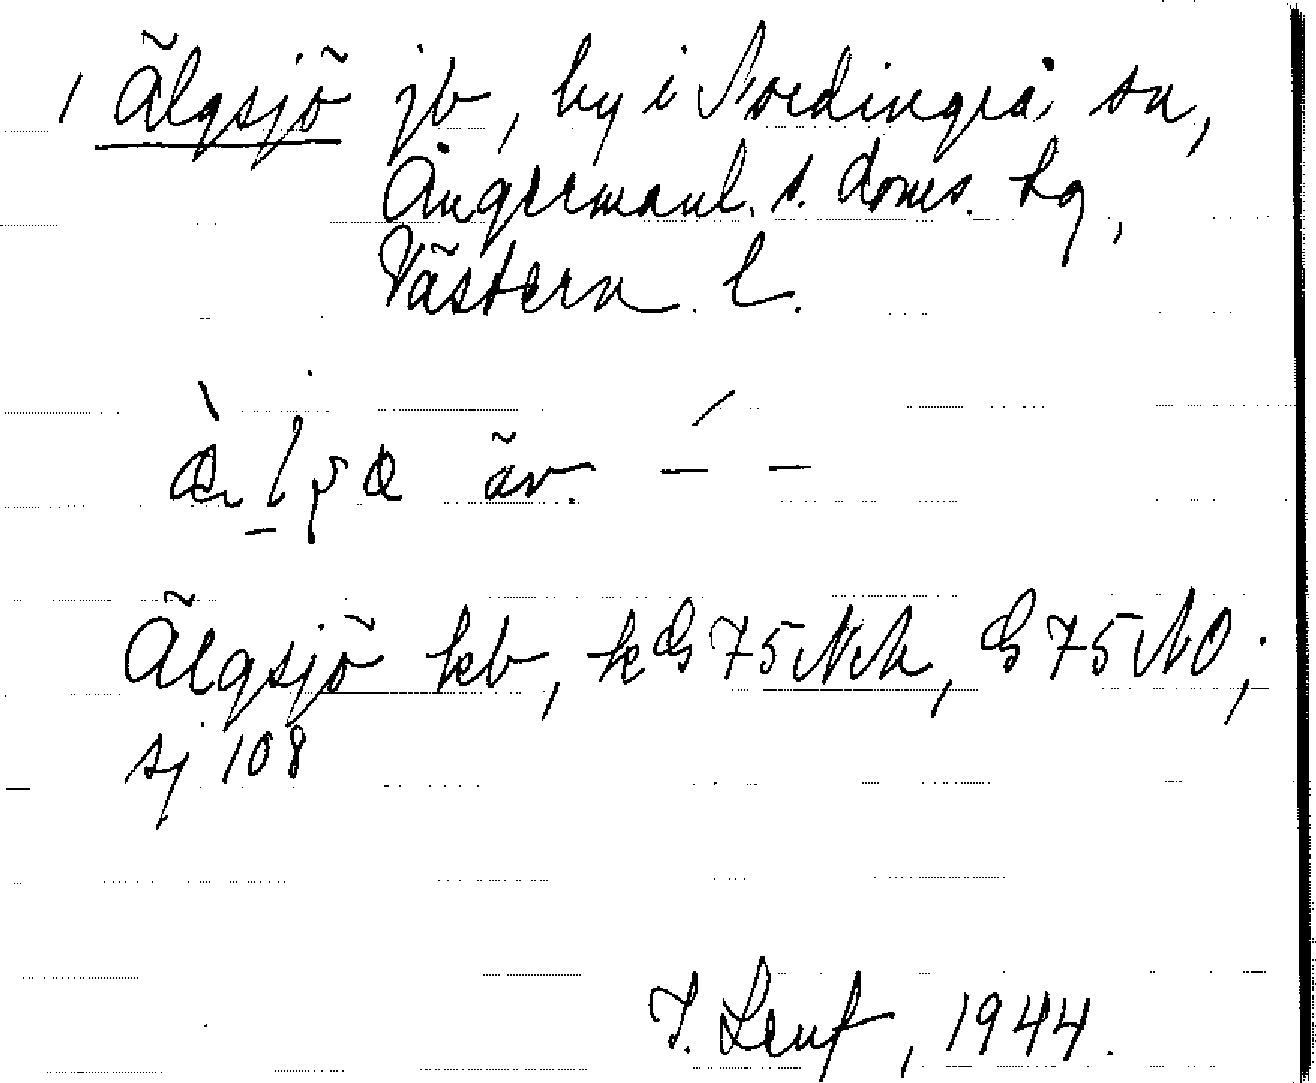 1 Älgsjö jb, by i Nordingrå sn,
Ångermanl. s. doms. hg,
Västern. l.
äv. — —
Älgsjö kb, k G 75 NN, G 75 NO;
sj 108
I. Leuf, 1944.